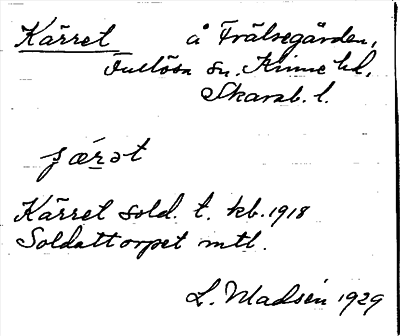 Kärret å Frälsegården,
Fullösa sn. Kinne hd,
Skarab. l.
Kärret sold. t. kb. 1918
Soldattorpet mtl.
L. Madsén 1929